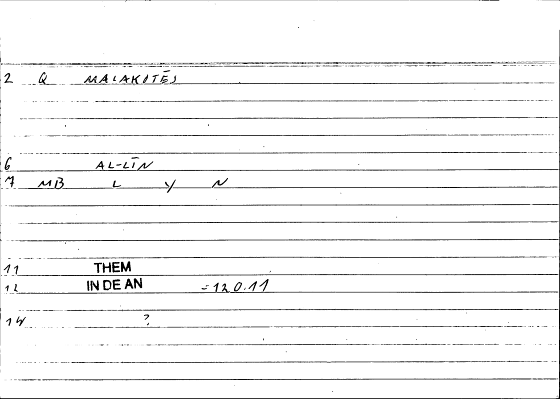 2 Q MALAKOTĒS
6 AL-LĪN
7 MB L Y N
11 THEM
12 IN DE AN = 120.11
14 ?